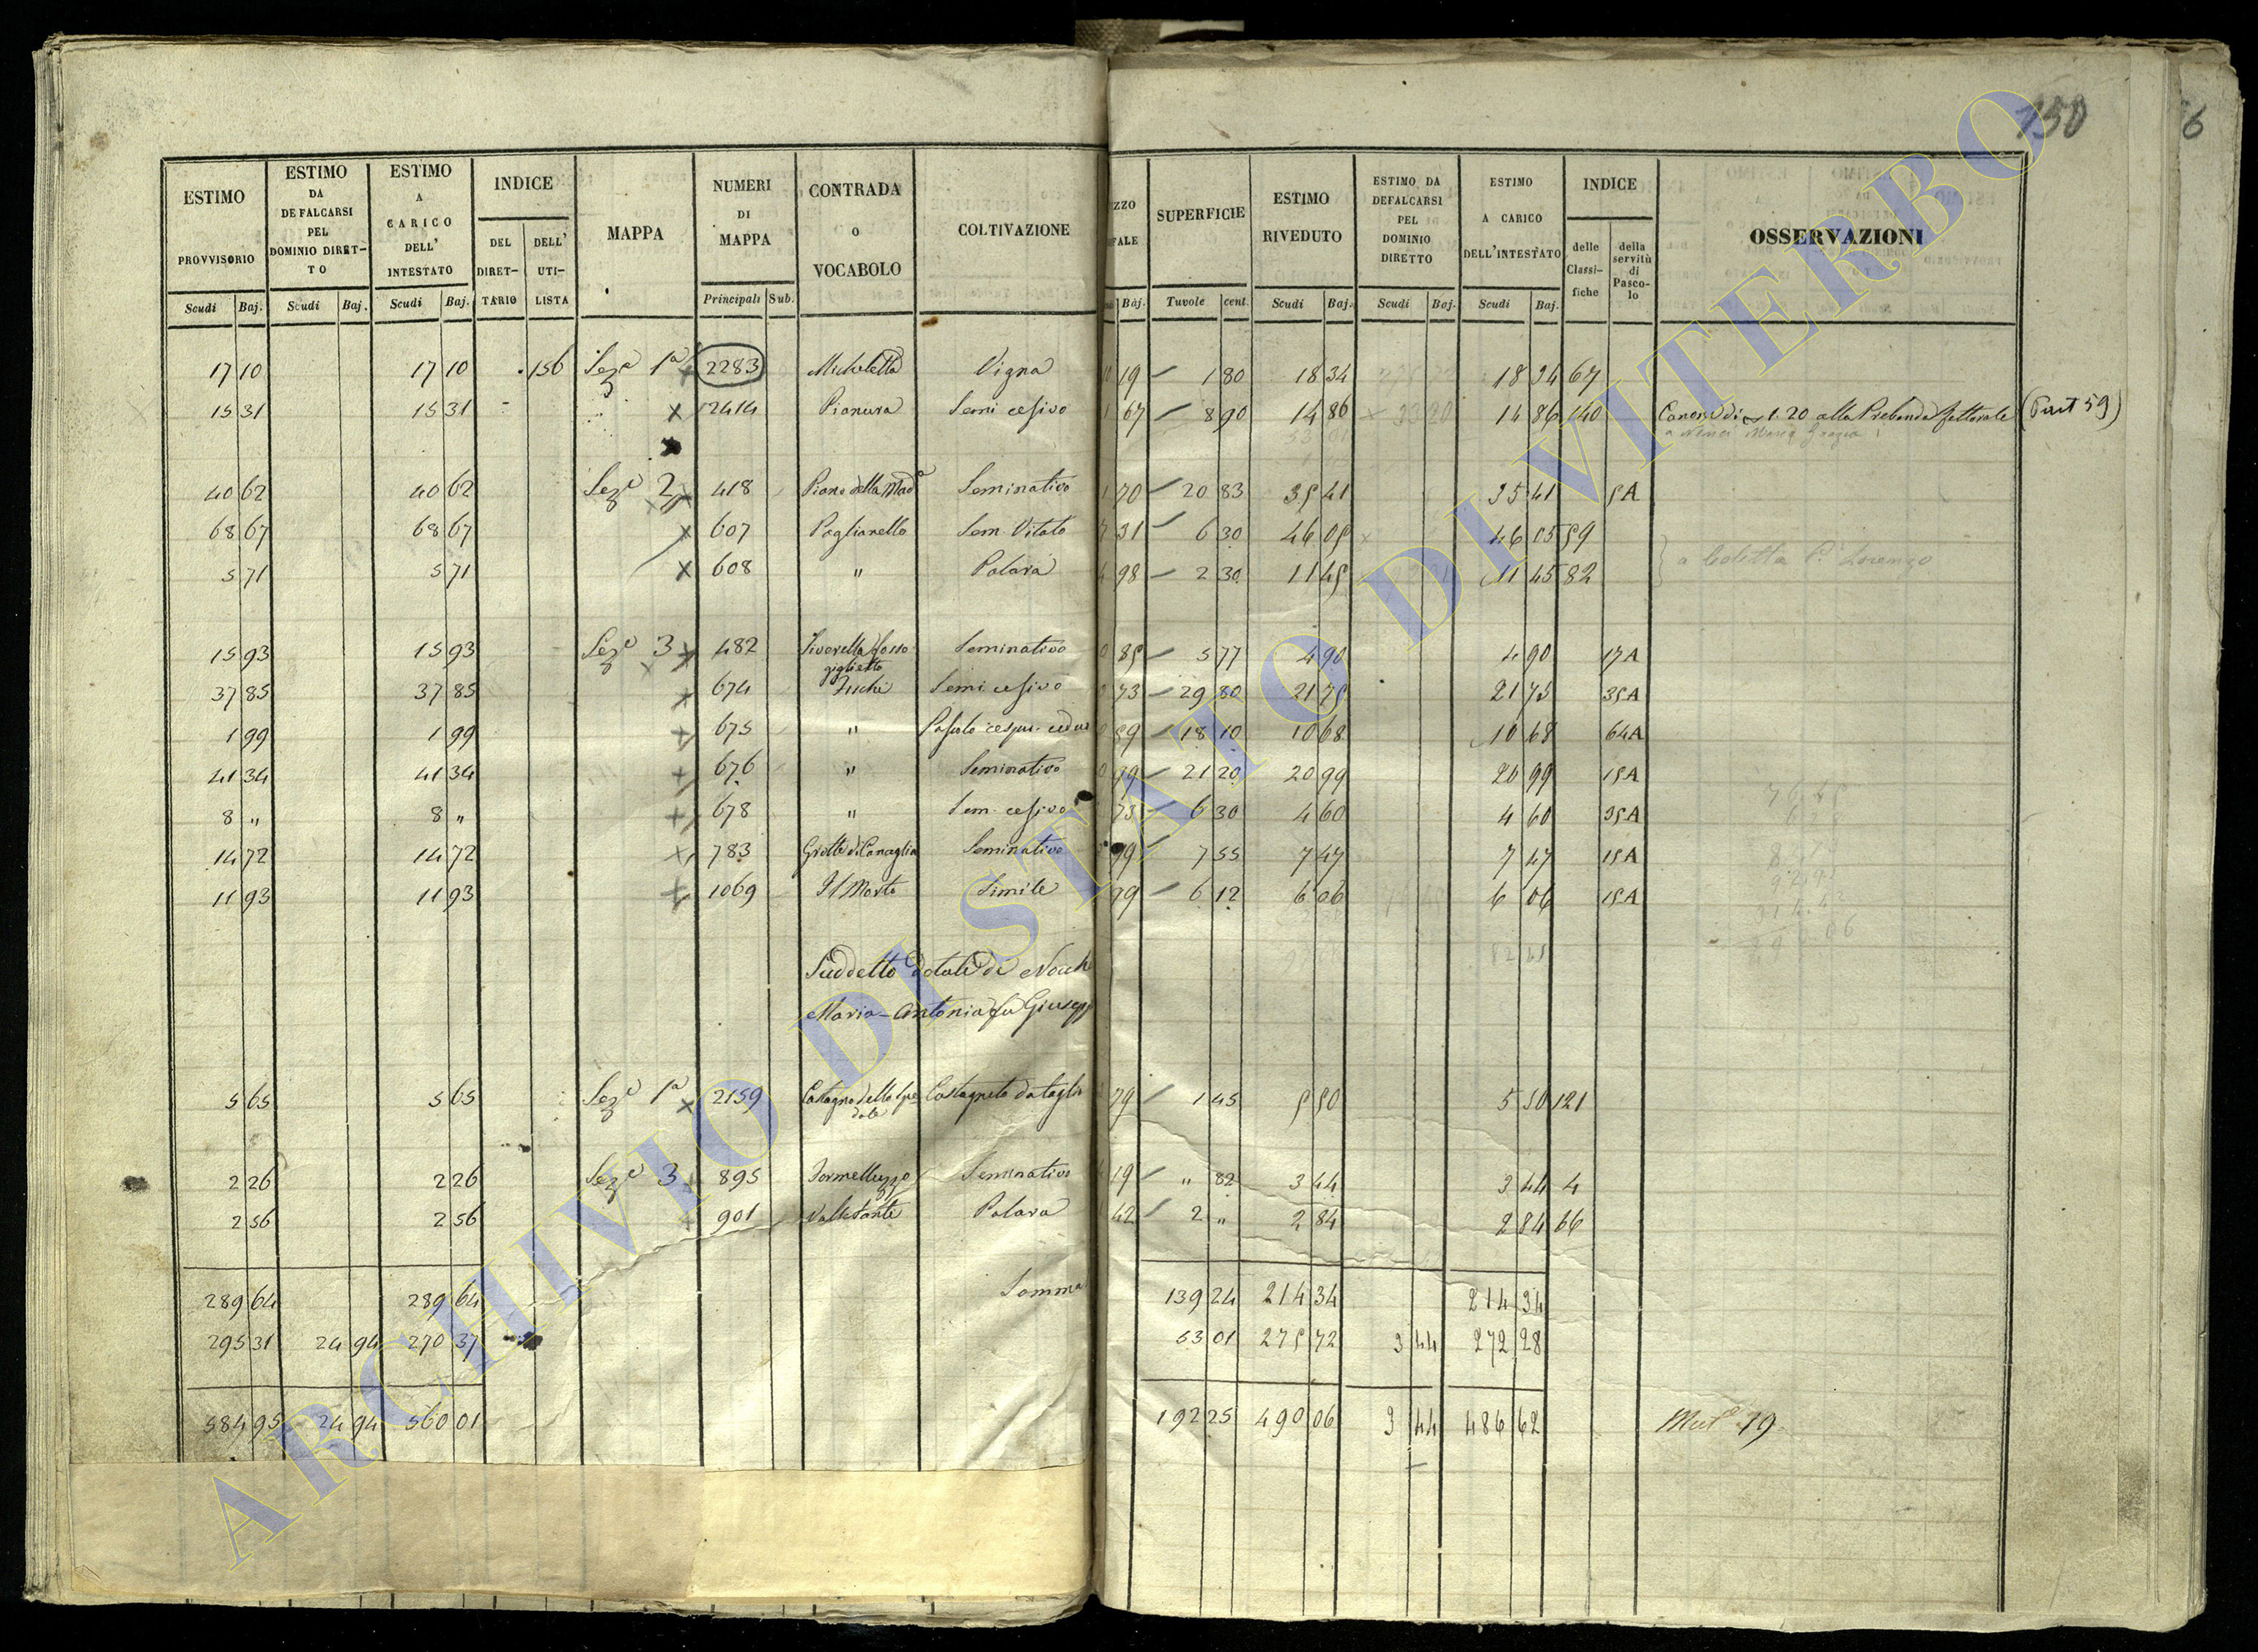 150
6
ESTIMO PROVVISORIO | ESTIMO DA DEFALCARSI PEL DOMINIO DIRET-TO | ESTIMO A CARICO DELL' INTESTATO | INDICE DEL DIRET-TARIO | DELL' UTI-LISTA | MAPPA | NUMERI DI MAPPA | CONTRADA O VOCABOLO | COLTIVAZIONE | SUPERFICIE | ESTIMO RIVEDUTO | ESTIMO DA DEFALCARSI PEL DOMINIO DIRETTO | ESTIMO A CARICO DELL'INTESTATO | INDICE delle Classi-fiche | della servitù di Pasco-lo | OSSERVAZIONI
Scudi | Baj. | Scudi | Baj. | Scudi | Baj. | Principali | Sub. | Baj. | Tavole | cent. | Scudi | Baj. | Scudi | Baj. | Scudi | Baj.
17 10 | 17 10 | 156 | Seze 1a | 2283 | Vigna | 19 | 1 80 | 18 34 | 18 34 | 67
15 31 | 15 31 | x | 2414 | Pianura | Semi cesivo | 67 | 8 90 | 14 86 | 14 86 | 140 | Canone di 1.20 alla Prebenda (Part 59)
40 62 | 40 62 | Seze 2 | 418 | Piano della Mada | Seminativo | 70 | 20 83 | 35 41 | 35 41 | 5A
68 67 | 68 67 | x | 607 | Poglianello | Sem. Vitato | 31 | 6 30 | 46 05 | 46 05 | 59
5 71 | 5 71 | x | 608 | " | 98 | 2 30 | 11 45 | 11 45 | 82 | Lorenzo
15 93 | 15 93 | Seze 3 | 482 | Seminativo | 85 | 5 77 | 4 90 | 4 90 | 17A
37 85 | 37 85 | x | 674 | Semi cesivo | 73 | 29 80 | 21 75 | 21 75 | 35A
1 99 | 1 99 | x | 675 | " | Pascolo cespu. ceduo | 59 | 18 10 | 10 68 | 10 68 | 64A
41 34 | 41 34 | x | 676 | " | Seminativo | 99 | 21 20 | 20 99 | 20 99 | 15A
8 " | 8 " | x | 678 | " | Sem. cesivo | 73 | 6 30 | 4 60 | 4 60 | 35A
14 72 | 14 72 | x | 783 | Grotte di Canaglia | Seminativo | 99 | 7 55 | 7 47 | 7 47 | 15A
11 93 | 11 93 | x | 1069 | Il Morto | Simile | 99 | 6 12 | 6 06 | 6 06 | 15A
Suddetto dotale di
Maria Antonia fu Giusepp
5 65 | 5 65 | Seze 1a x | 2159 | Castagneto da taglio | 79 | 1 45 | 5 50 | 5 50 | 121
2 26 | 2 26 | Seze 3 | 895 | Seminativo | 19 | " 82 | 3 44 | 3 44 | 4
2 56 | 2 56 | 901 | 42 | 2 " | 2 84 | 2 84 | 66
289 64 | 289 64 | Somma | 139 24 | 214 34 | 214 34
295 31 | 24 94 | 270 37 | 53 01 | 275 72 | 3 44 | 272 28
584 95 | 24 94 | 560 01 | 192 25 | 490 06 | 3 44 | 486 62 | 19
ARCHIVIO DI STATO DI VITERBO